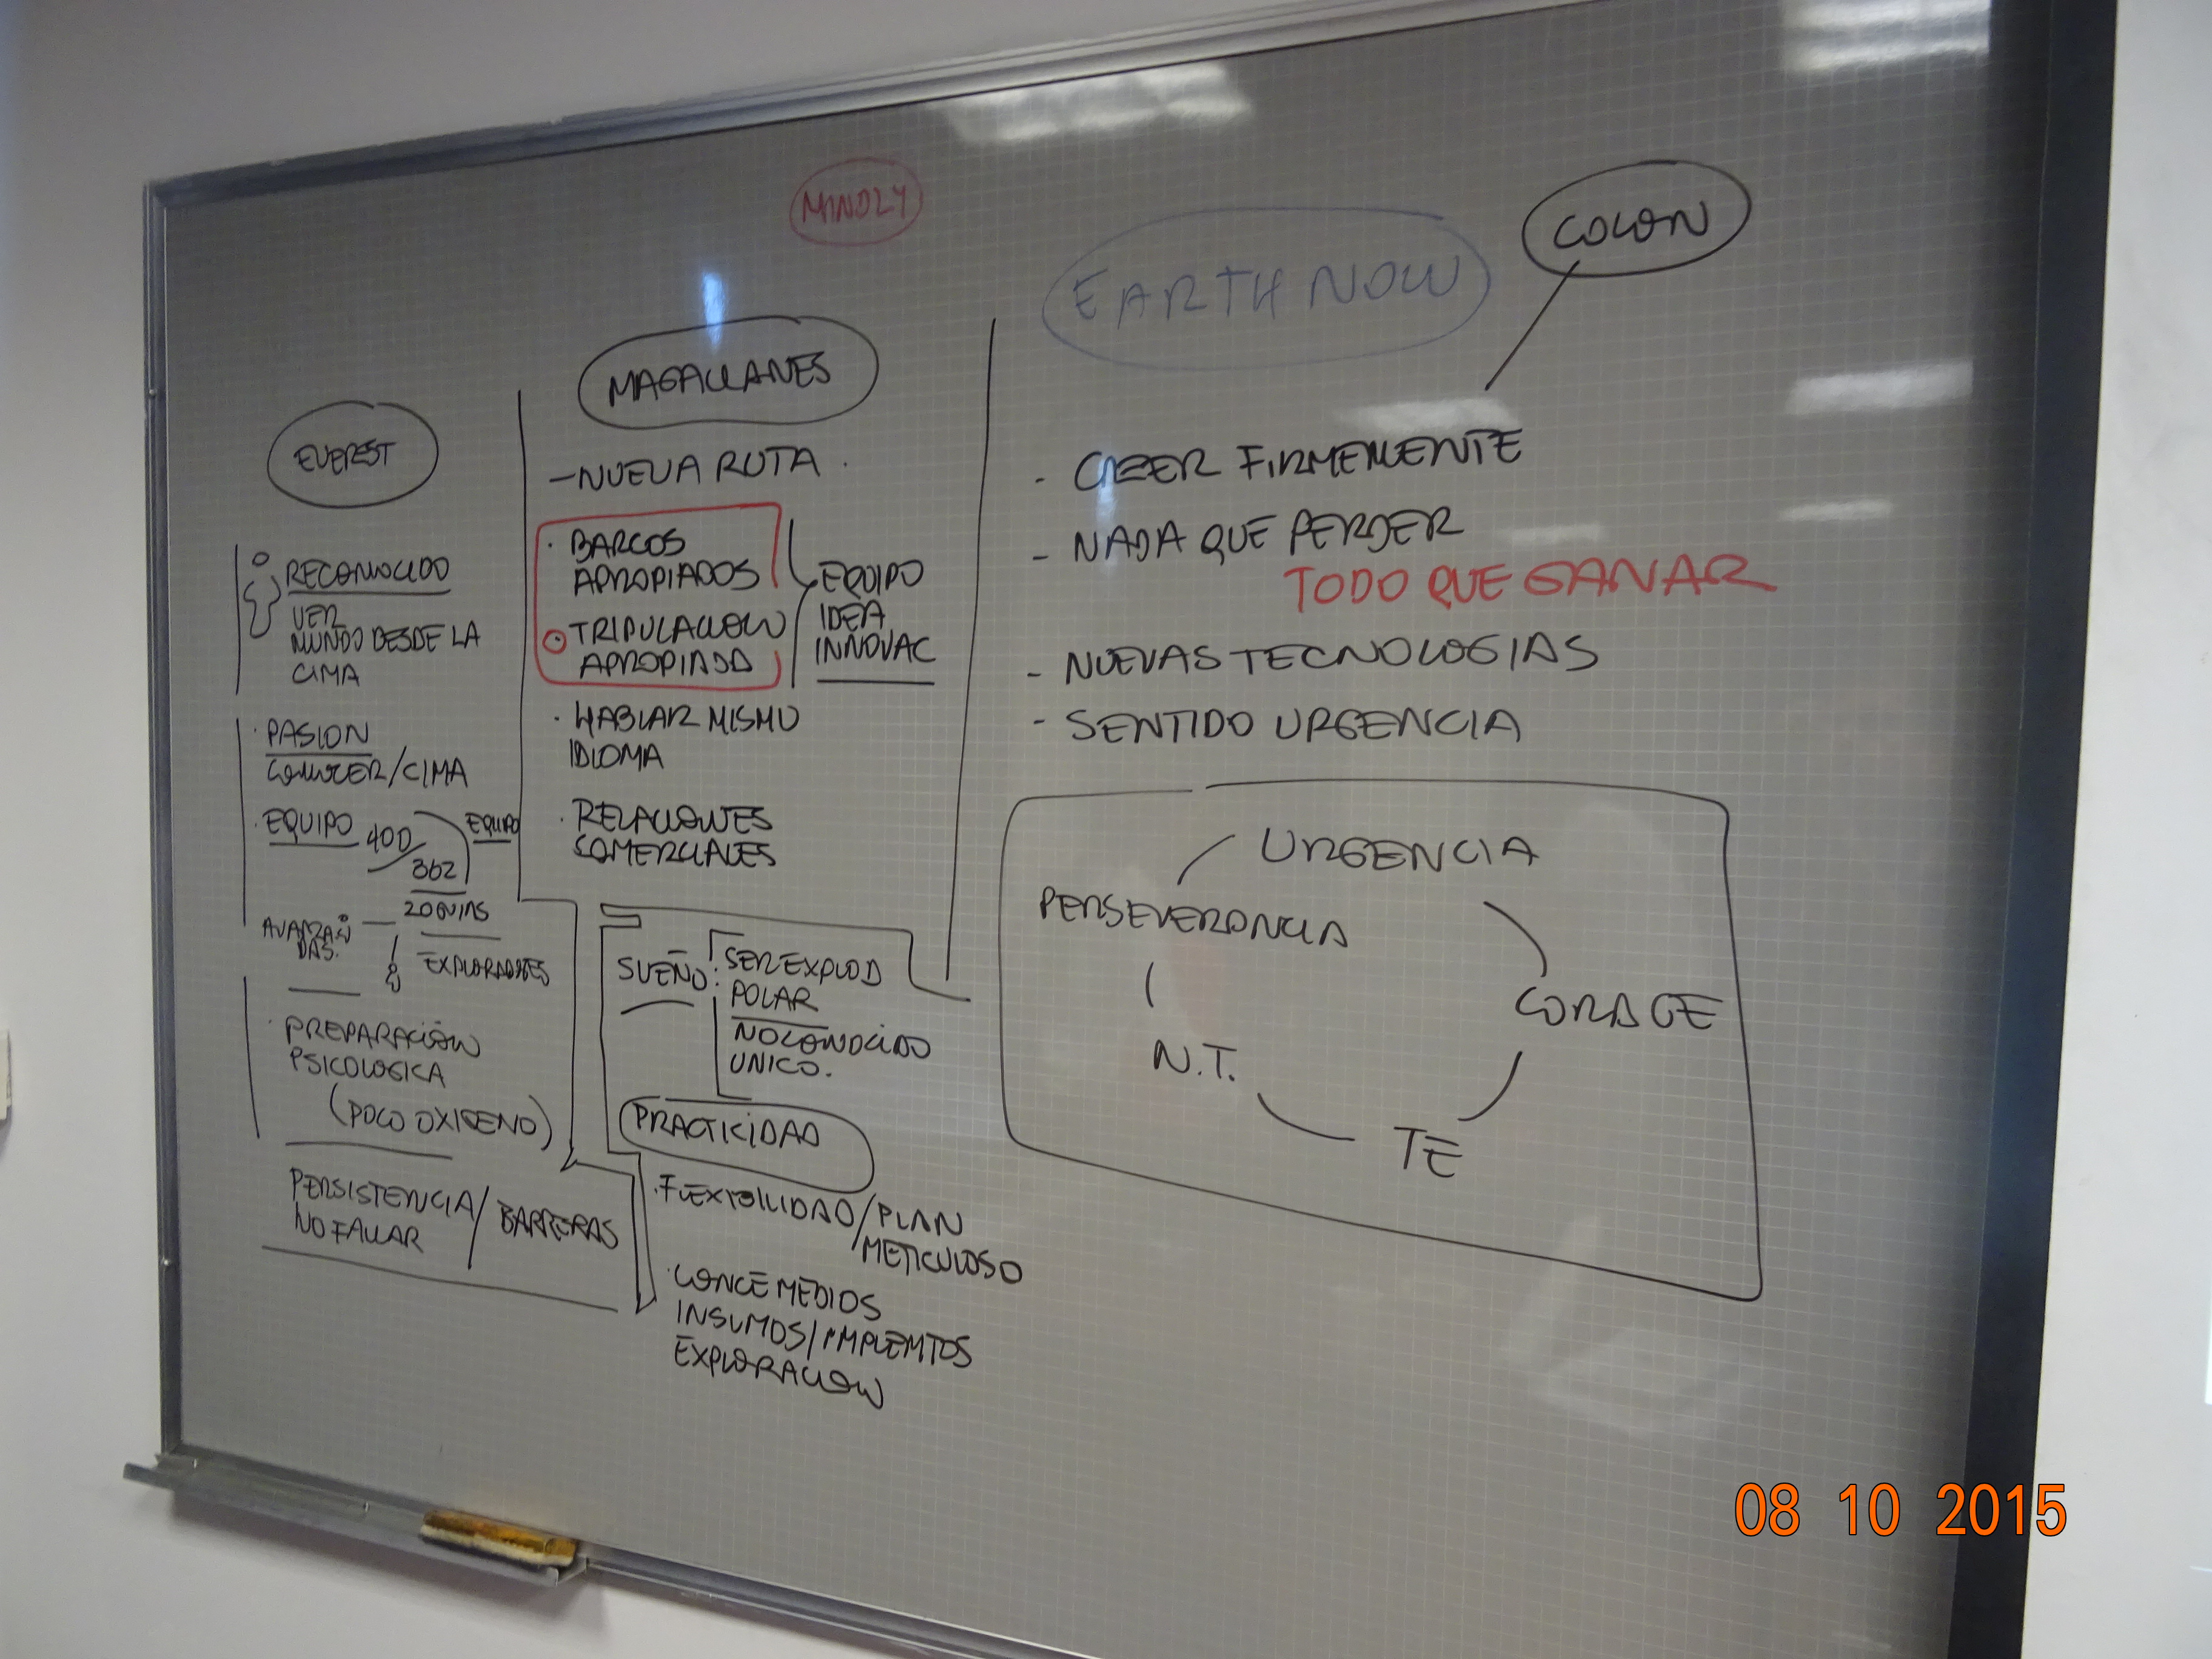 MINDLY
EARTH NOW
COLON
EVEREST
RECONOCIDO
VER
MUNDO DESDE LA
CIMA
· PASION
CONOCER/CIMA
· EQUIPO 400
362
EQUIPO
20 GUIAS
AVANZA
DAS.
EXPLORADORES
· PREPARACIÓN
PSICOLOGICA
(POCO OXIGENO)
PERSISTENCIA/
NO FALLAR
BARRERAS
MAGALLANES
- NUEVA RUTA.
· BARCOS
APROPIADOS
· TRIPULACION
APROPIADA
EQUIPO
IDEA
INNOVAC
· HABLAR MISMO
IDIOMA
· RELACIONES
COMERCIALES
SUEÑO:
SER EXPLOD
POLAR
NO CONOCIDO
UNICO.
PRACTICIDAD
· FLEXIBILIDAD/PLAN
METICULOSO
· CONCE MEDIOS
INSUMOS/IMPLEMTOS
EXPLORACION
- CREER FIRMEMENTE
- NADA QUE PERDER
TODO QUE GANAR
- NUEVAS TECNOLOGIAS
- SENTIDO URGENCIA
URGENCIA
PERSEVERANCIA
CORAGE
N.T.
TE
08 10 2015